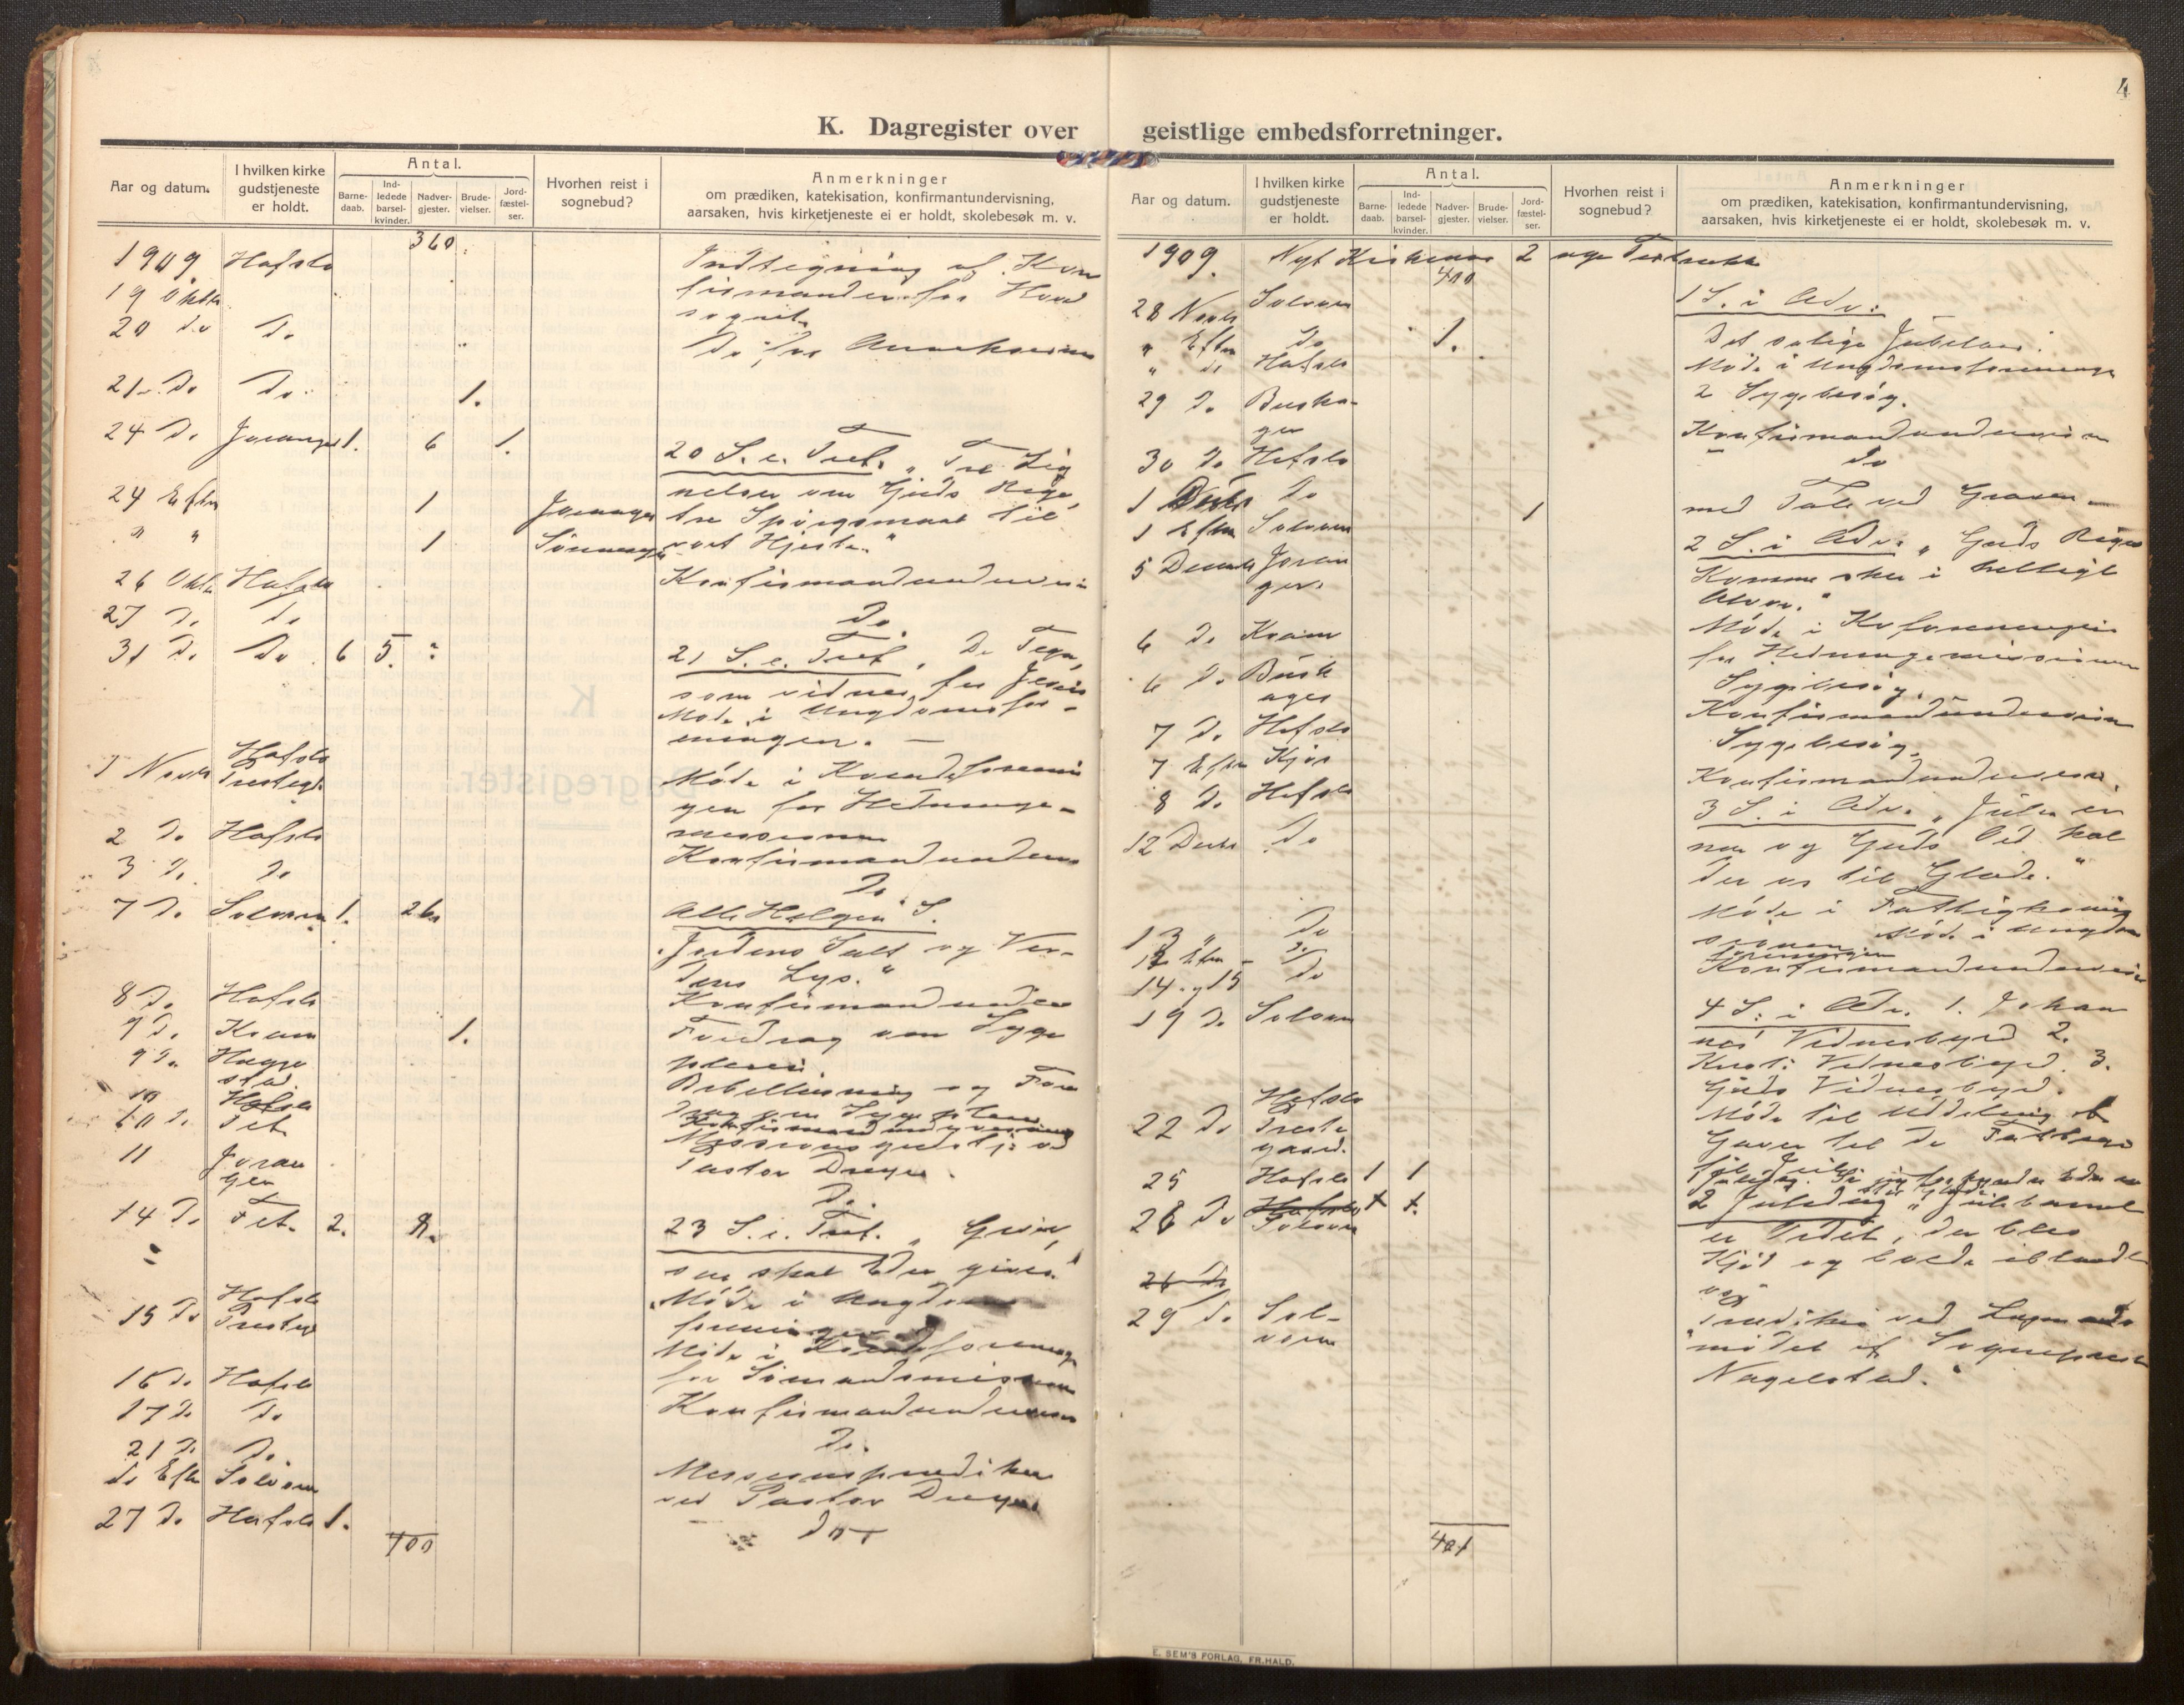 4
K. Dagregister over geistlige embedsforretninger.
Aar og datum.
I hvilken kirke gudstjeneste er holdt.
Antal.
Barne-daab.
Ind-ledede barsel-kvinder.
Nadver-gjester.
Brude-vielser.
Jord-fæstel-ser.
Hvorhen reist i sognebud?
Anmerkninger
om prædiken, katekisation, konfirmantundervisning,
aarsaken, hvis kirketjeneste ei er holdt, skolebesøk m. v.
1909 Hafslo 360 Indtegning af Kon
19 Oktbr firmander for Hoved
20 do Do sognet
Do for Annekserne
21 do Do 1.
24 Do Joranger 1. 6 1. 20 S. e. Tref. „Tre Lig
24 Eftm 1 Joranger nelser om Guds Rige,
tre Spørgsmaal til
" " 1 vort Hjerte."
26 Oktbr Hafslo Konfirmandundervisn
27 Do do Do
31 Do Do 6 5. 21 S. e. Tref. De Tegn,
som vidner for Jesus
Møde i Ungdomsfor-
eningen. —
1 Novbr Hafslo Prestegd. Møde i Kvindeforenin
gen for Hedninge-
missionen
2 Do Hafslo Konfirmandunderv
3 Do Do Do
7 Do Solvorn 1. 26 Alle Helgen S.
Jordens Salt og Ver-
dens Lys."
8 Do Hafslo Konfirmandunder
9 Do Kroken 1. Foredrag om Syge
9 Do pleien
Bibellæsning og Fore
10 Hafslo drag om Sygepleien
10 Do Fet Konfirmandundervisning
Missionsgudstj. ved
11 Joran
ger Pastor Dreyer.
Do.
14 Do Fet. 2. 8. 23 S. e. Tref. „Giver,
saa skal Eder gives."
Møde i Ungdoms
foreningen
15 Do Hafslo Presteg Møde i Kvindeforening
for Sømandsmissionen
16 Do Hafslo Konfirmandundervisn
17 Do Do Do.
21 Do Do Missionsprædiken
do Eftm Solvorn ved Pastor Dreyer
27 Do Hafslo 1. Do
400
Aar og datum.
I hvilken kirke gudstjeneste er holdt.
Antal.
Barne-daab.
Ind-ledede barsel-kvinder.
Nadver-gjester.
Brude-vielser.
Jord-fæstel-ser.
Hvorhen reist i sognebud?
Anmerkninger
om prædiken, katekisation, konfirmantundervisning,
aarsaken, hvis kirketjeneste ei er holdt, skolebesøk m. v.
1909. Nyt Kirkeaar 2 nye Textrække
400
28 Novbr Solvorn 1 S. i Adv.
" Eftm Do 1. Det salige Jubelaar.
" do Hafslo Møde i Ungdomsforeningen
29 Do 2 Sygebesøg.
30 Do Hafslo Konfirmandundervisn
1 Decbr Do do
1 Eftm Solvorn 1 med Tale ved Graven
5 Decembr Joran
ger. 2 S. i Adv. „Guds Riges
Komme sker i helligt
Alvor."
6 Do Kroken Møde i Kvforeningen
for Hedningemissionen
6 Do Sygebesøg.
7 Do Hafslo Konfirmandundervisn
7 Eftm Kjos Sygebesøg
8 Do Hafslo Konfirmandundervisn
12 Decbr Do 3 S. i Adv. „Julen er
nær og Guds Ord kal
der os til Glæde."
13 " Do Møde i Fattigkommis
sionen. Møde i Ungdoms
12 Eftm Do foreningen
14 og 15 Do Konfirmandundervisn
19 Do Solvorn 4 S. i Adv. 1. Johan
nes Vidnesbyrd 2.
Kristi Vidnesbyrd. 3.
Guds Vidnesbyrd.
22 Do Hafslo Preste
gaard. Møde til Uddeling af
Gaver til de Fattige
til Jul
25 Hafslo 1 1 1 Juledag. Se jeg forkynder Eder en stor Glæde
26 Do Hafslo Solvorn 1 1. 2 Juledag „Julebarnet
er Ordet, der blev
Kjød og boede iblandt
os"
26 do
29 Do Sol-
vorn Prædiken ved Lægmands
mødet af Sogneprest
Nagelstad.
401
E. SEM'S FORLAG, FR.HALD.